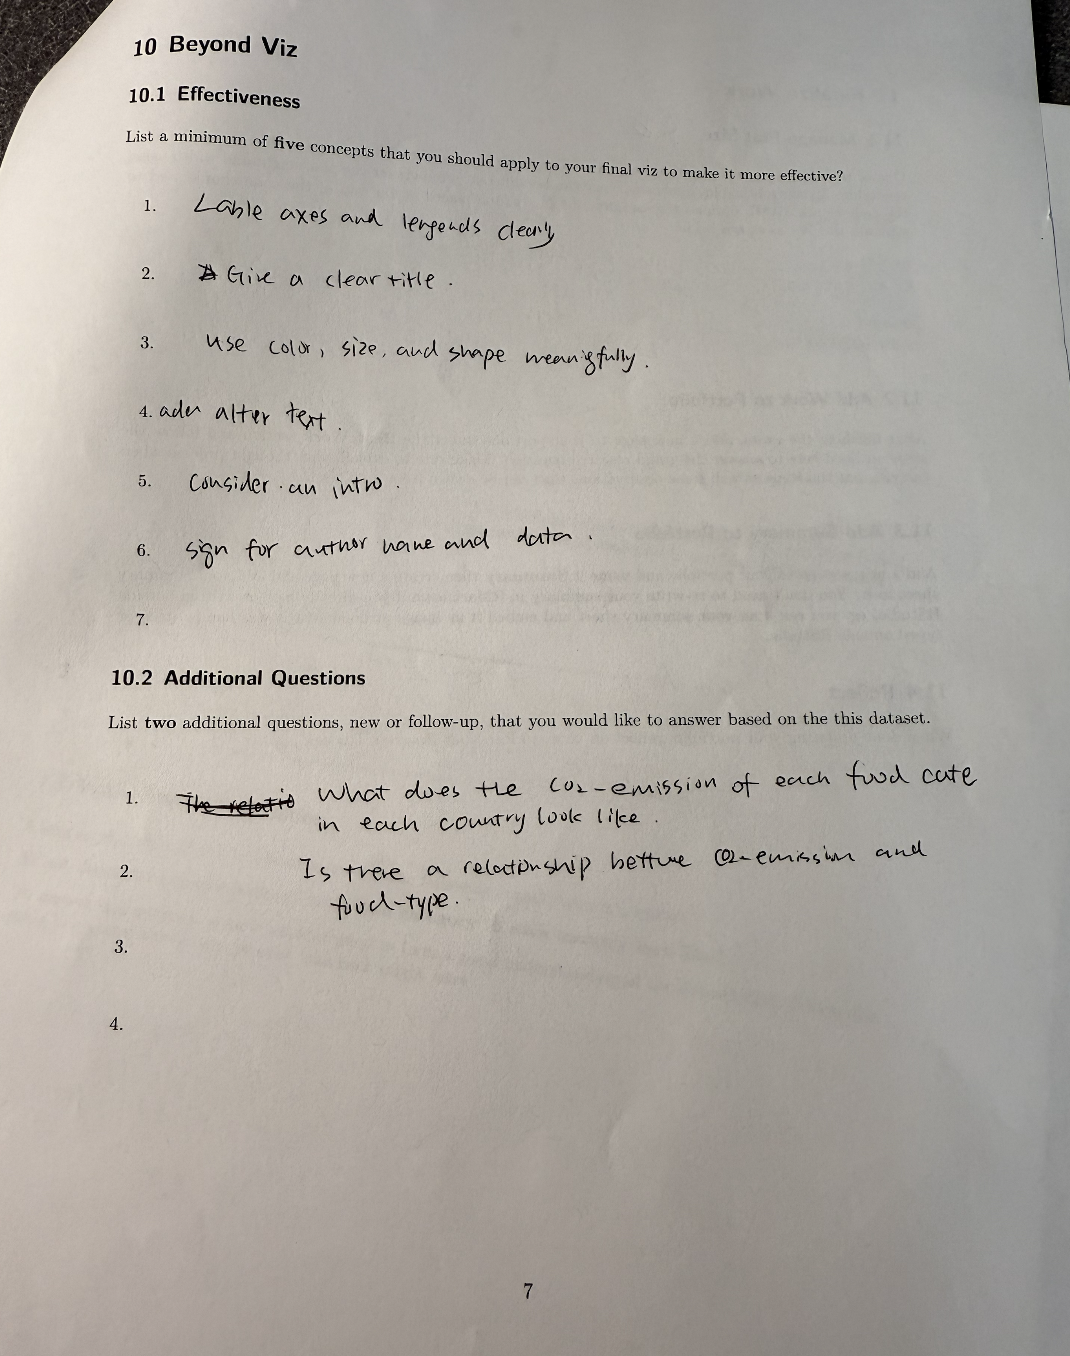 10 Beyond Viz
10.1 Effectiveness
List a minimum of five concepts that you should apply to your final viz to make it more effective?
1. Lable axes and lengends clearly
2. Give a clear title.
3. Use color, size, and shape meanigfully.
4. alter text.
5. Consider an intro.
6. sign for author name and data.
7.
10.2 Additional Questions
List two additional questions, new or follow-up, that you would like to answer based on the this dataset.
1. The relatio What does the CO2-emission of each food cate
in each country look like.
2. Is there a relationship CO2-emission and
food-type.
3.
4.
7